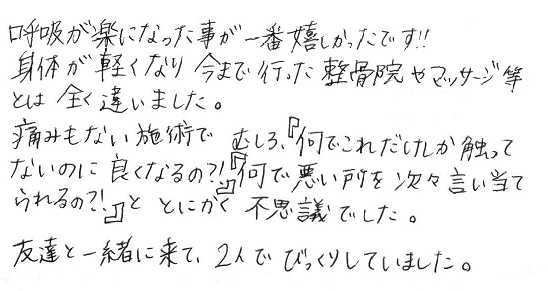 呼吸が楽になった事が一番嬉しかったです!!
身体が軽くなり今まで行った整骨院やマッサージ等
とは全く違いました。
痛みもない施術でむしろ、『何でこれだけしか触って
ないのに良くなるの?!』『何で悪い所を次々言い当て
られるの?!』ととにかく不思議でした。
友達と一緒に来て、2人でびっくりしていました。